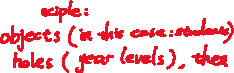 ciple:
objects (in this case: students)
holes (year levels), then